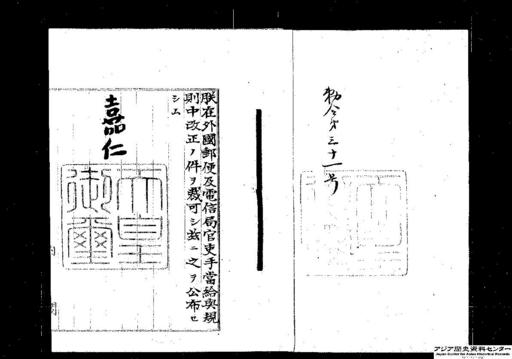 勅令第三十一号
朕在外國郵便及電信局官吏手當給與規
則中改正ノ件ヲ裁可シ玆ニ之ヲ公布セ
シム
嘉仁
天皇
御璽
アジア歴史資料センター
Japan Center for Asian Historical Records